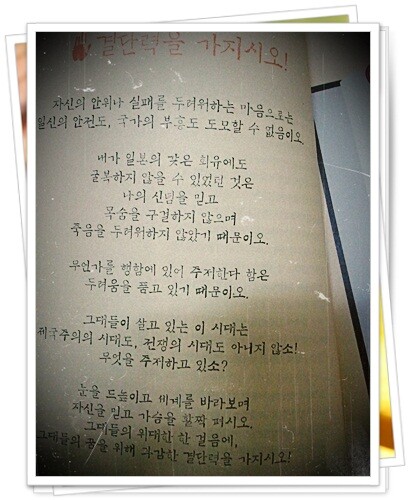 결단력을 가지시오!
자신의 안위나 실패를 두려워하는 마음으로는
일신의 안전도, 국가의 부흥도 도모할 수 없음이오.
내가 일본의 갖은 회유에도
굴복하지 않을 수 있었던 것은
나의 신념을 믿고
목숨을 구걸하지 않으며
죽음을 두려워하지 않았기 때문이오.
무언가를 행함에 있어 주저한다 함은
두려움을 품고 있기 때문이오.
그대들이 살고 있는 이 시대는
제국주의의 시대도, 전쟁의 시대도 아니지 않소!
무엇을 주저하고 있소?
눈을 드높이고 세계를 바라보며
자신을 믿고 가슴을 활짝 펴시오.
그대들의 위대한 한 걸음에,
그대들의 꿈을 위해 과감한 결단력을 가지시오!